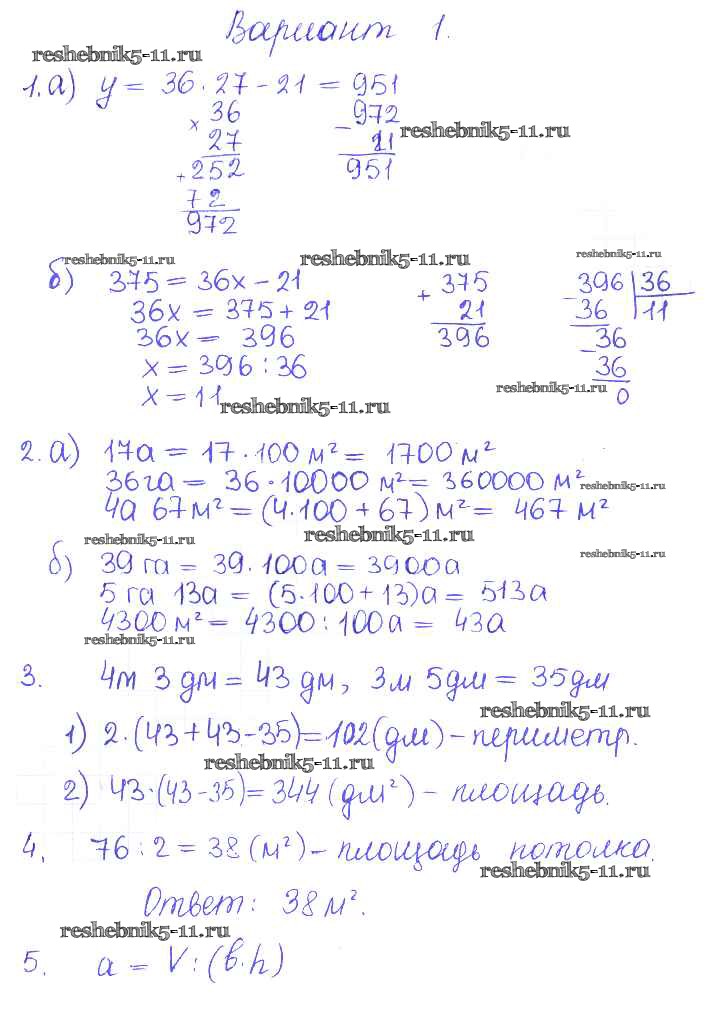 Вариант 1.
reshebnik5-11.ru
1.а) y = 36·27-21 = 951
× 36
27
+ 252
72
972
972
- 21
951
reshebnik5-11.ru
reshebnik5-11.ru reshebnik5-11.ru reshebnik5-11.ru
б) 375 = 36x - 21
36x = 375 + 21
36x = 396
x = 396 : 36
x = 11
+ 375
21
396
396 | 36
- 36 | 11
36
- 36
0
reshebnik5-11.ru
reshebnik5-11.ru
2. а) 17а = 17·100 м² = 1700 м²
36га = 36·10000 м² = 360000 м²
reshebnik5-11.ru
4а 67м² = (4·100 + 67) м² = 467 м²
reshebnik5-11.ru reshebnik5-11.ru reshebnik5-11.ru
б) 39 га = 39·100а = 3900а
5 га 13а = (5·100 + 13)а = 513а
4300 м² = 4300 : 100а = 43а
reshebnik5-11.ru
3. 4м 3 дм = 43 дм, 3м 5дм = 35дм
reshebnik5-11.ru
1) 2·(43 + 43 - 35) = 102 (дм) - периметр.
reshebnik5-11.ru
2) 43·(43 - 35) = 344 (дм²) - площадь.
4. 76 : 2 = 38 (м²) - площадь потолка.
reshebnik5-11.ru
Ответ: 38 м².
reshebnik5-11.ru
5. a = V : (b·h)